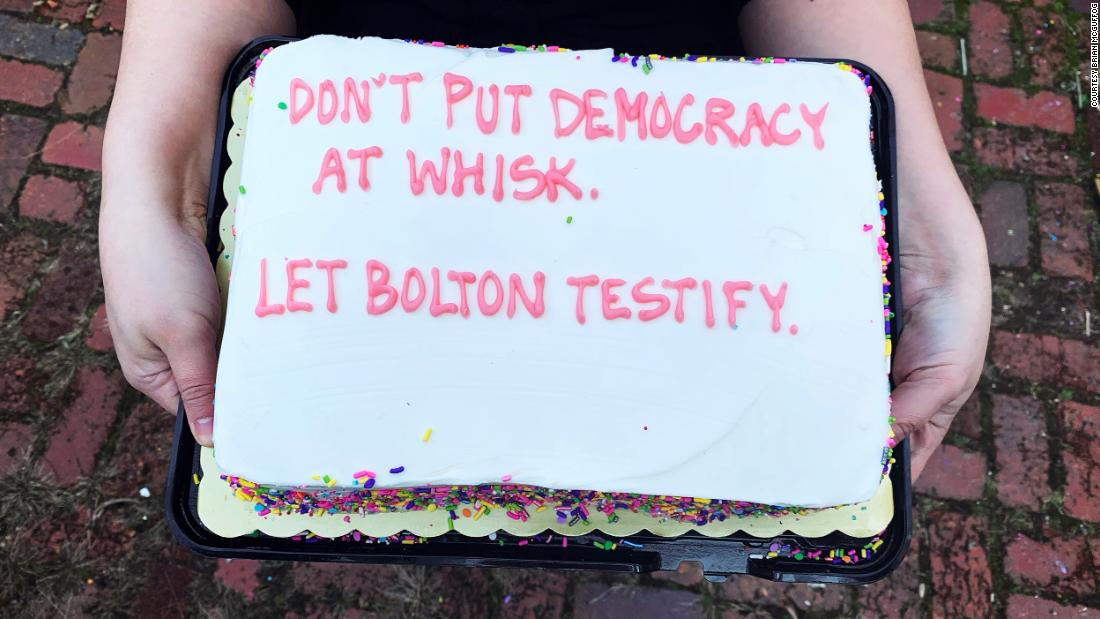 DON'T PUT DEMOCRACY
AT WHISK.
LET BOLTON TESTIFY.
COURTESY BRIAN MCGUFFOG